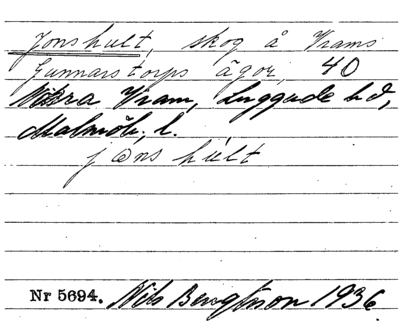 Jonshult, skog å Vrams
Gunnarstorps ägor, 40
Norra Vram, Luggude hd,
Malmöh. l.
jons hult
Nr 5694. Nils Bengtsson 1936